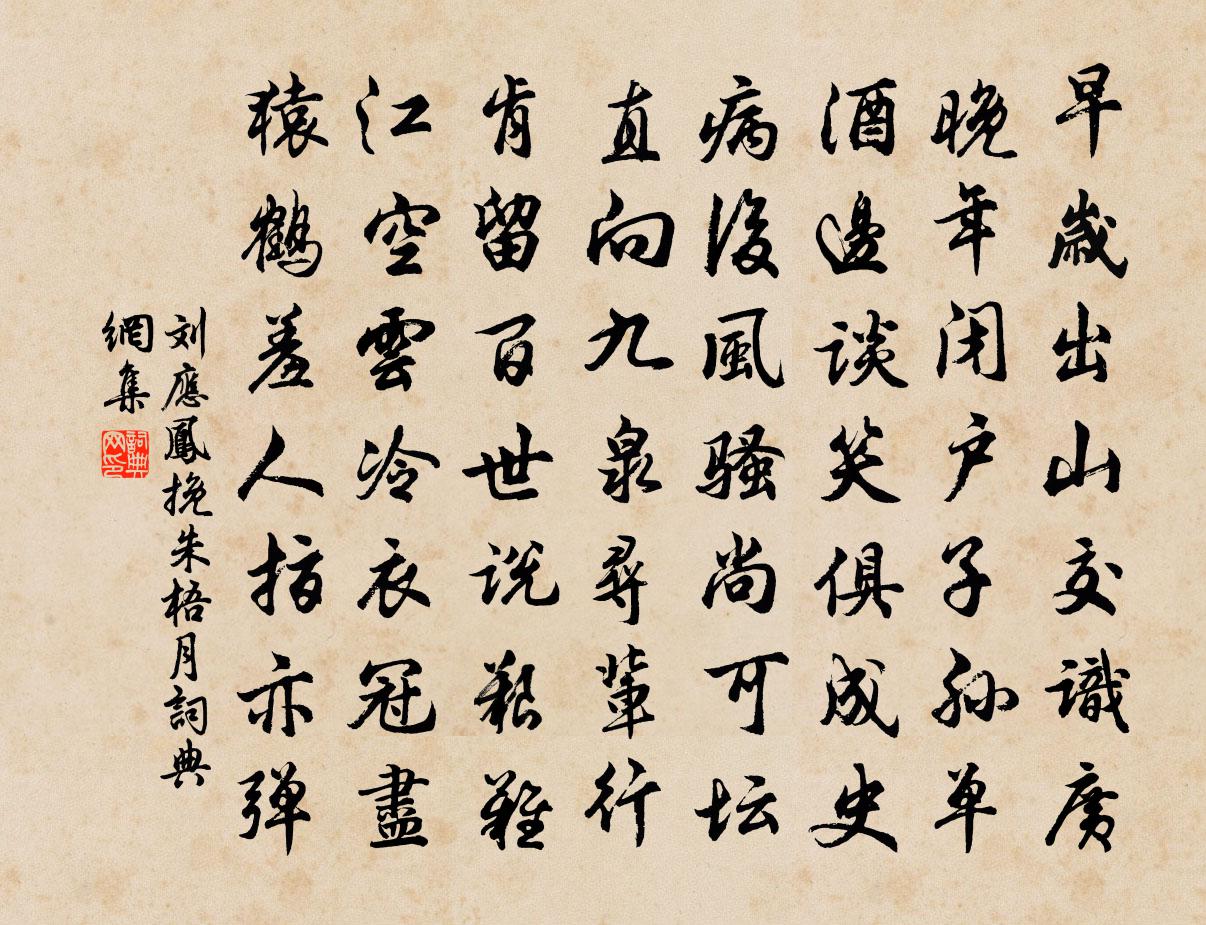 早歲出山交識廣
晚年闭户子孙单
酒邊談笑俱成史
病後風騷尚可坛
直向九泉尋輩行
肯留百世說艱難
江空雲冷衣冠盡
猿鶴羞人指亦弹
刘應鳳挽朱梧月詞典
網集
詞典
网印